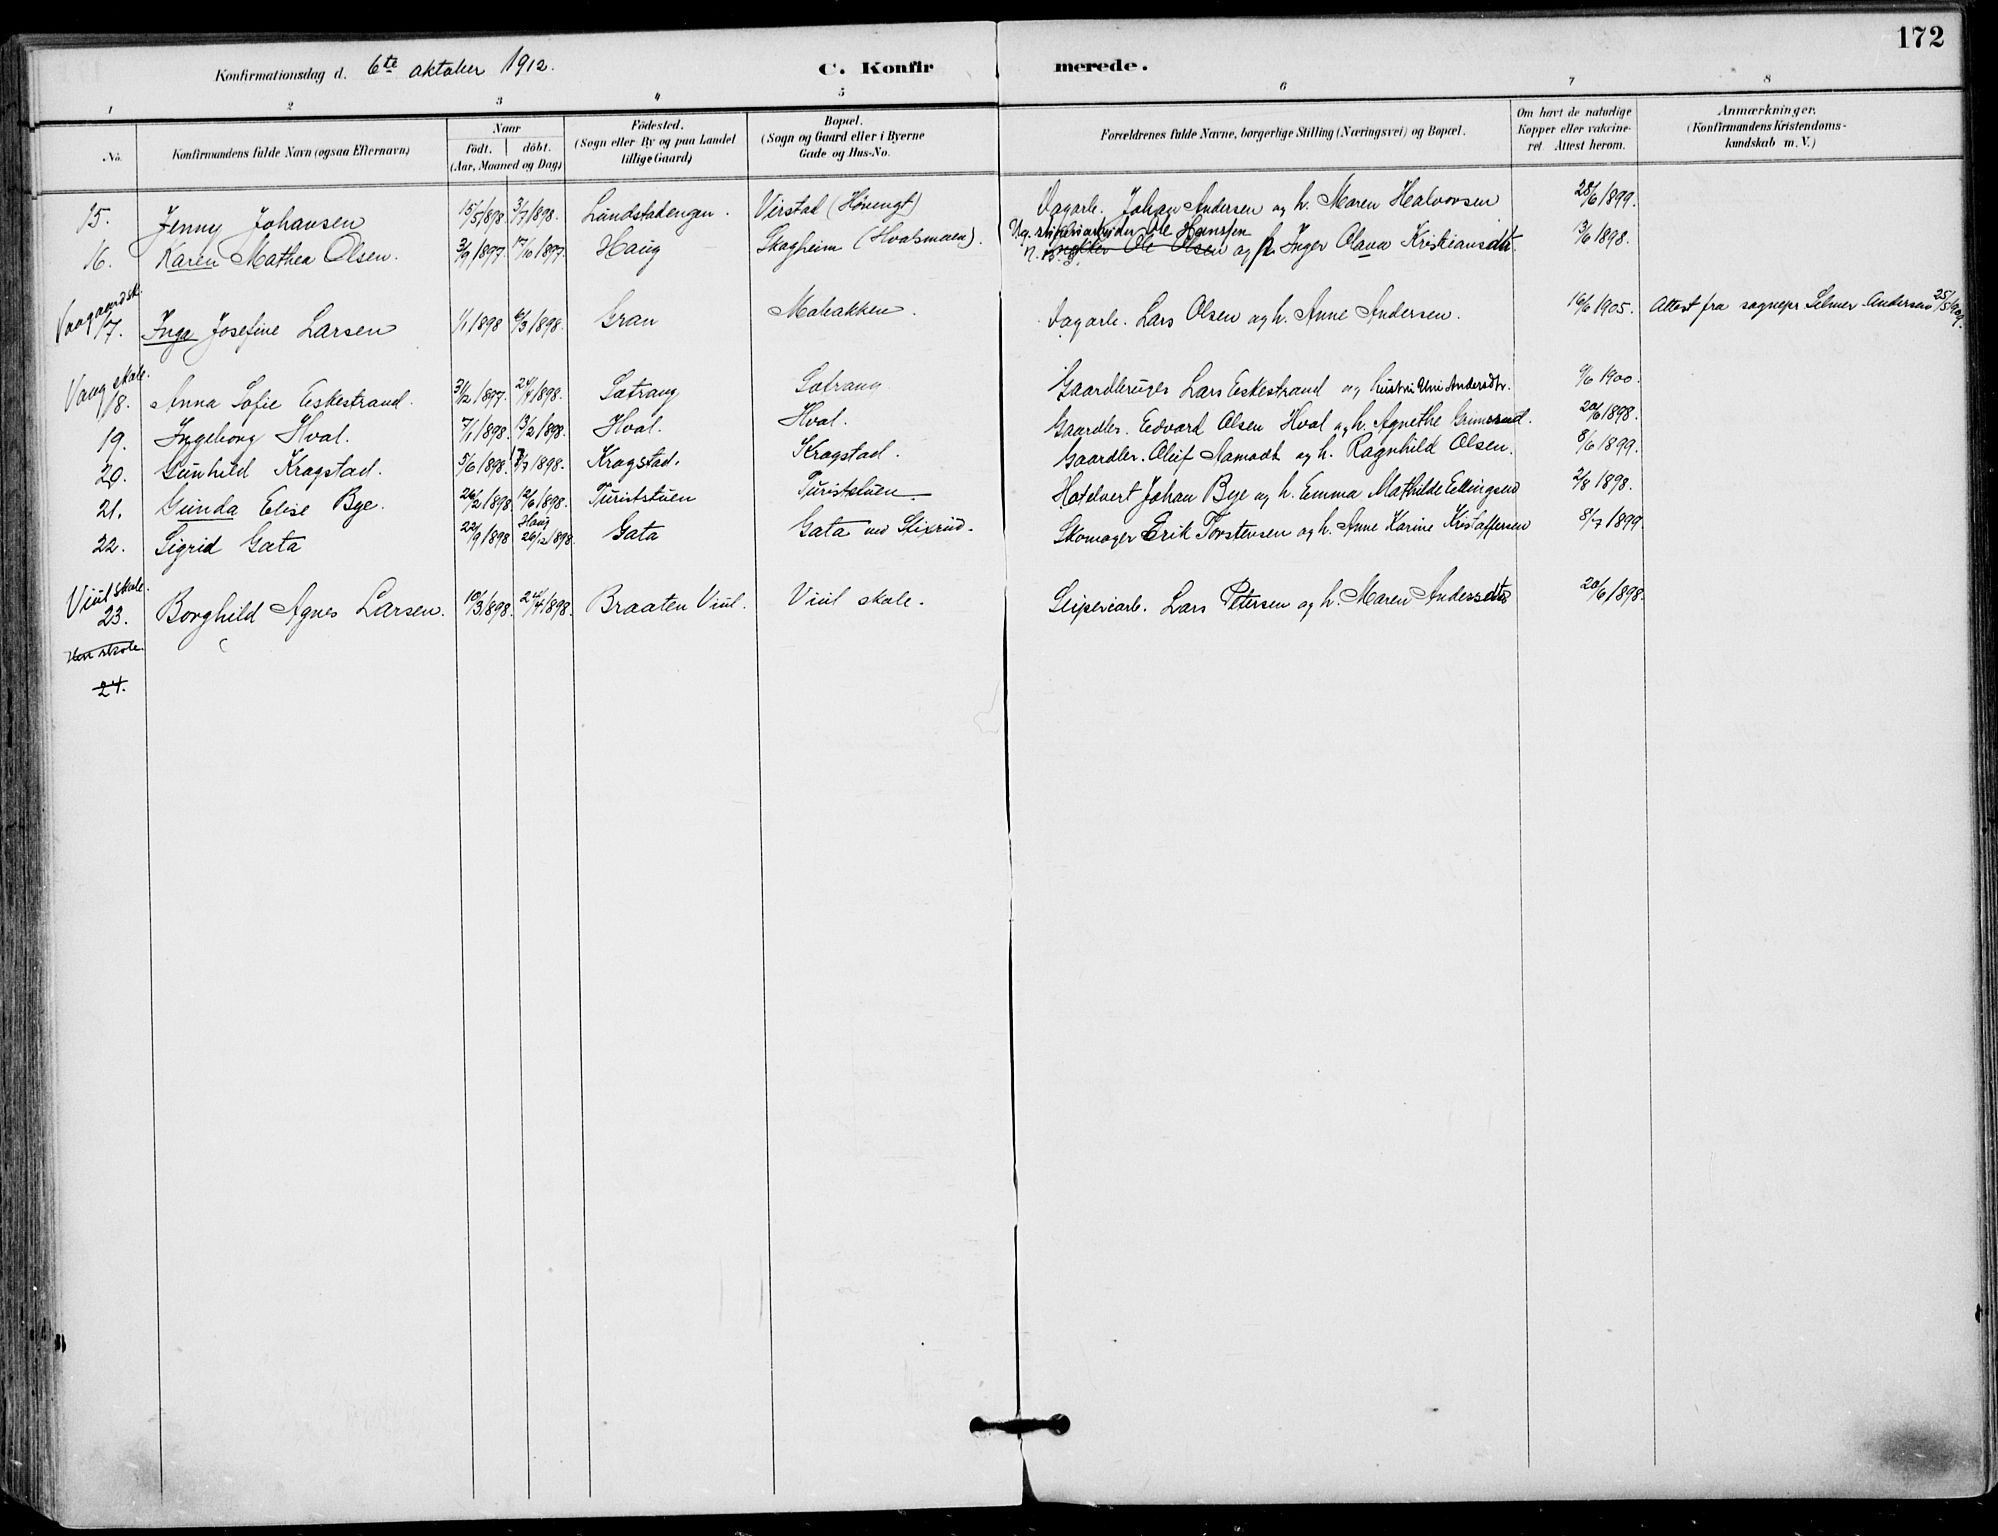 172
Konfirmationsdag d. 6te oktober 1912. C. Konfirmerede.
1 2 3 4 5 6 7 8
No. Konfirmandens fulde Navn (ogsaa Efternavn) Naar födt. döbt. (Aar, Maaned og Dag) Födested. (Sogn eller By og paa Landet tillige Gaard) Bopæl. (Sogn og Gaard eller i Byerne Gade og Hus-No. Forældrenes fulde Navne, borgerlige Stilling (Næringsvei) og Bopæl. Om havt de naturlige Kopper eller vakcineret. Attest herom. Anmærkninger. (Konfirmandens Kristendomskundskab m. V.)
15. Jenny Johansen 15/5 1898. 3/7 1898. Lundstadengen. Virstad (Hövengt) Dagarb. Johan Andersen og h. Maren Halvorsen 28/6 1899.
Ug. sliperiarbeider Ole Hanssen
16. Karen Mathea Olsen. 3/9 1897. 17/10 1897. Haug Skagheim (Hvalsmoen). Ole Olsen og Inger Olava Kristiansdtr 13/6 1898.
17. Inga Josefine Larsen 1/1 1898 6/3 1898. Gran Mobakken. Dagarb. Lars Olsen og h. Anne Andersen. 16/6 1905. Attest fra sognepr. Selmer Andersen 25/5 1909.
Vaug skole.
18. Anna Sofie Eskestrand. 31/12 1897. 24/4 1898. Sotrang Sotrang Gaardbruger Lars Eskestrand og hustru Uni Andersdtr. 9/6 1900.
19. Ingeborg Hval. 7/1 1898. 13/2 1898. Hval. Hval. Gaardbr. Edvard Olsen Hval og h. Agnethe Grimsrud. 20/6 1898.
20. Gunhild Kragstad. 5/6 1898. 17/7 1898. Kragstad. Kragstad. Gaardbr. Oluf Aamodt og h. Ragnhild Olsen. 8/6 1899.
21. Gunda Elise Bye. 26/2 1898. 12/6 1898. Turiststuen Turiststuen. Hotelvert Johan Bye og h. Emma Mathilde Ellingsen 2/8 1898.
22. Sigrid Gata 22/9 1898 Haug 26/12 1898. Gata Gata ved Stixrud. Skomager Erik Torstensen og h. Anne Karine Kristoffersen 8/7 1899.
Viul skole.
23. Borghild Agnes Larsen. 10/3 1898. 24/4 1898. Braaten Viul. Viul skole. Sliperiarb. Lars Petersen og h. Maren Andersdtr 20/6 1898.
24.